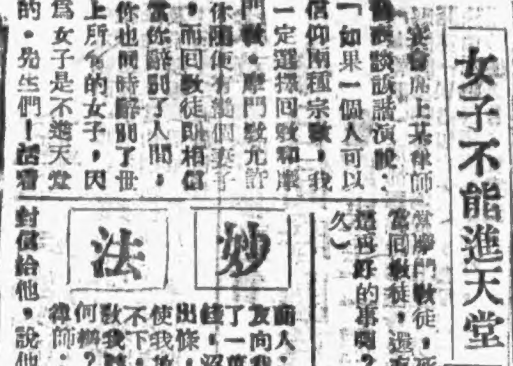 女子不能進天堂
會席上某律師
談話演說：
「如果一個人可以
信仰兩種宗教，我
一定選擇回教和摩
門教。摩門教允許
你隨便有幾個妻子
，而回教徒則相信
當你辭別了人間，
你也同時辭別了世
上所有的女子，因
爲女子是不進天堂
的。先生們！活着
當摩門教徒，死
當回教徒，還有
再好的事嗎？
久）
妙法
商人：
友向我
了一萬
錢，沒
出條，
使我放
不下，
教我
何辦？
律師：
封信給他，說他